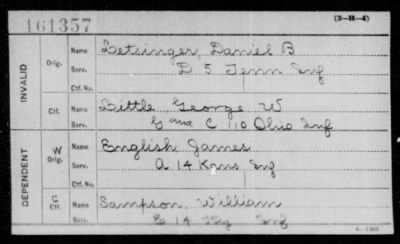 161357
(3-H-4)
INVALID
Orig.
Name Letsinger, Daniel B
Serv. D 5 Tenn Inf
Ctf. No.
Ctf.
Name Little, George W
Serv. G and C 110 Ohio Inf
DEPENDENT
W
Orig.
Name English James
Serv. A 14 Kans Inf
Ctf. No.
C
Ctf.
Name Sampson, William
Serv. E 14 Ky Inf